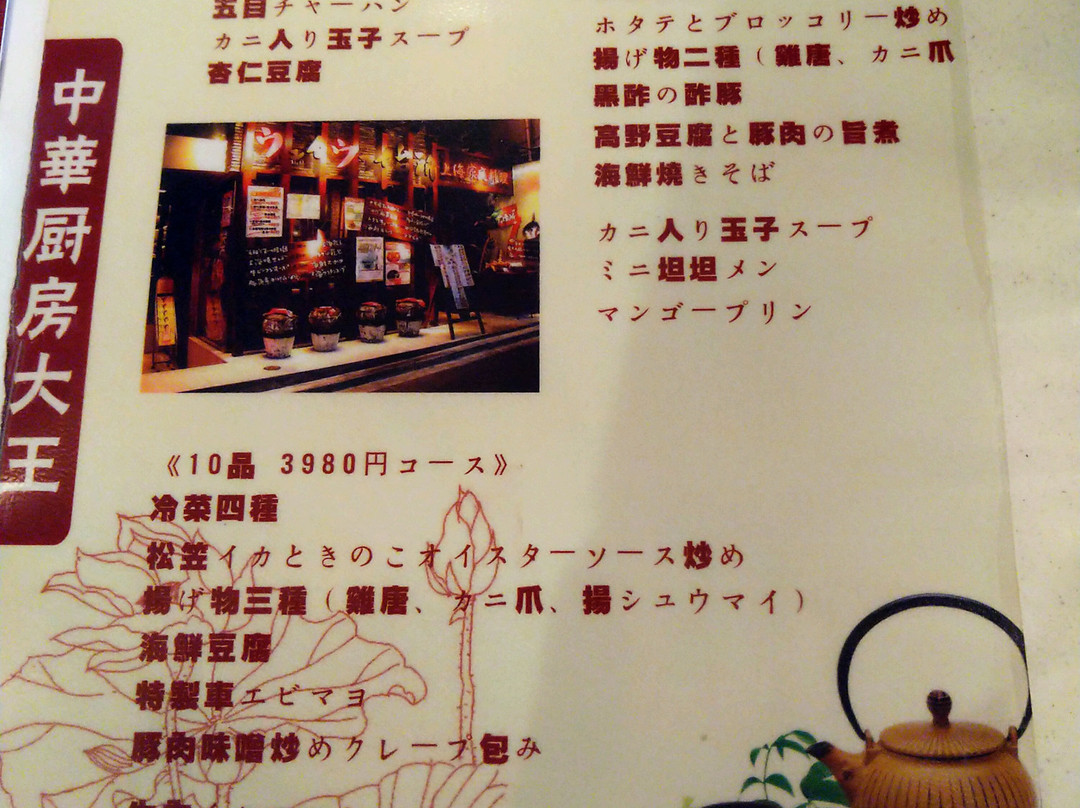 中華厨房大王
五目チャーハン
カニ人り玉子スープ
杏仁豆腐
ホタテとブロッコリー炒め
揚げ物二種（雞唐、カニ爪
黒酢の酢豚
高野豆腐と豚肉の旨煮
海鮮燒きそば
カニ人り玉子スープ
ミニ坦坦メン
マンゴープリン
《10品 3980円コース》
冷菜四種
松笠イカときのこオイスターソース炒め
揚げ物三種（雞唐、カニ爪、揚シュウマイ）
海鮮豆腐
特製車エビマヨ
豚肉味噌炒めクレープ包み